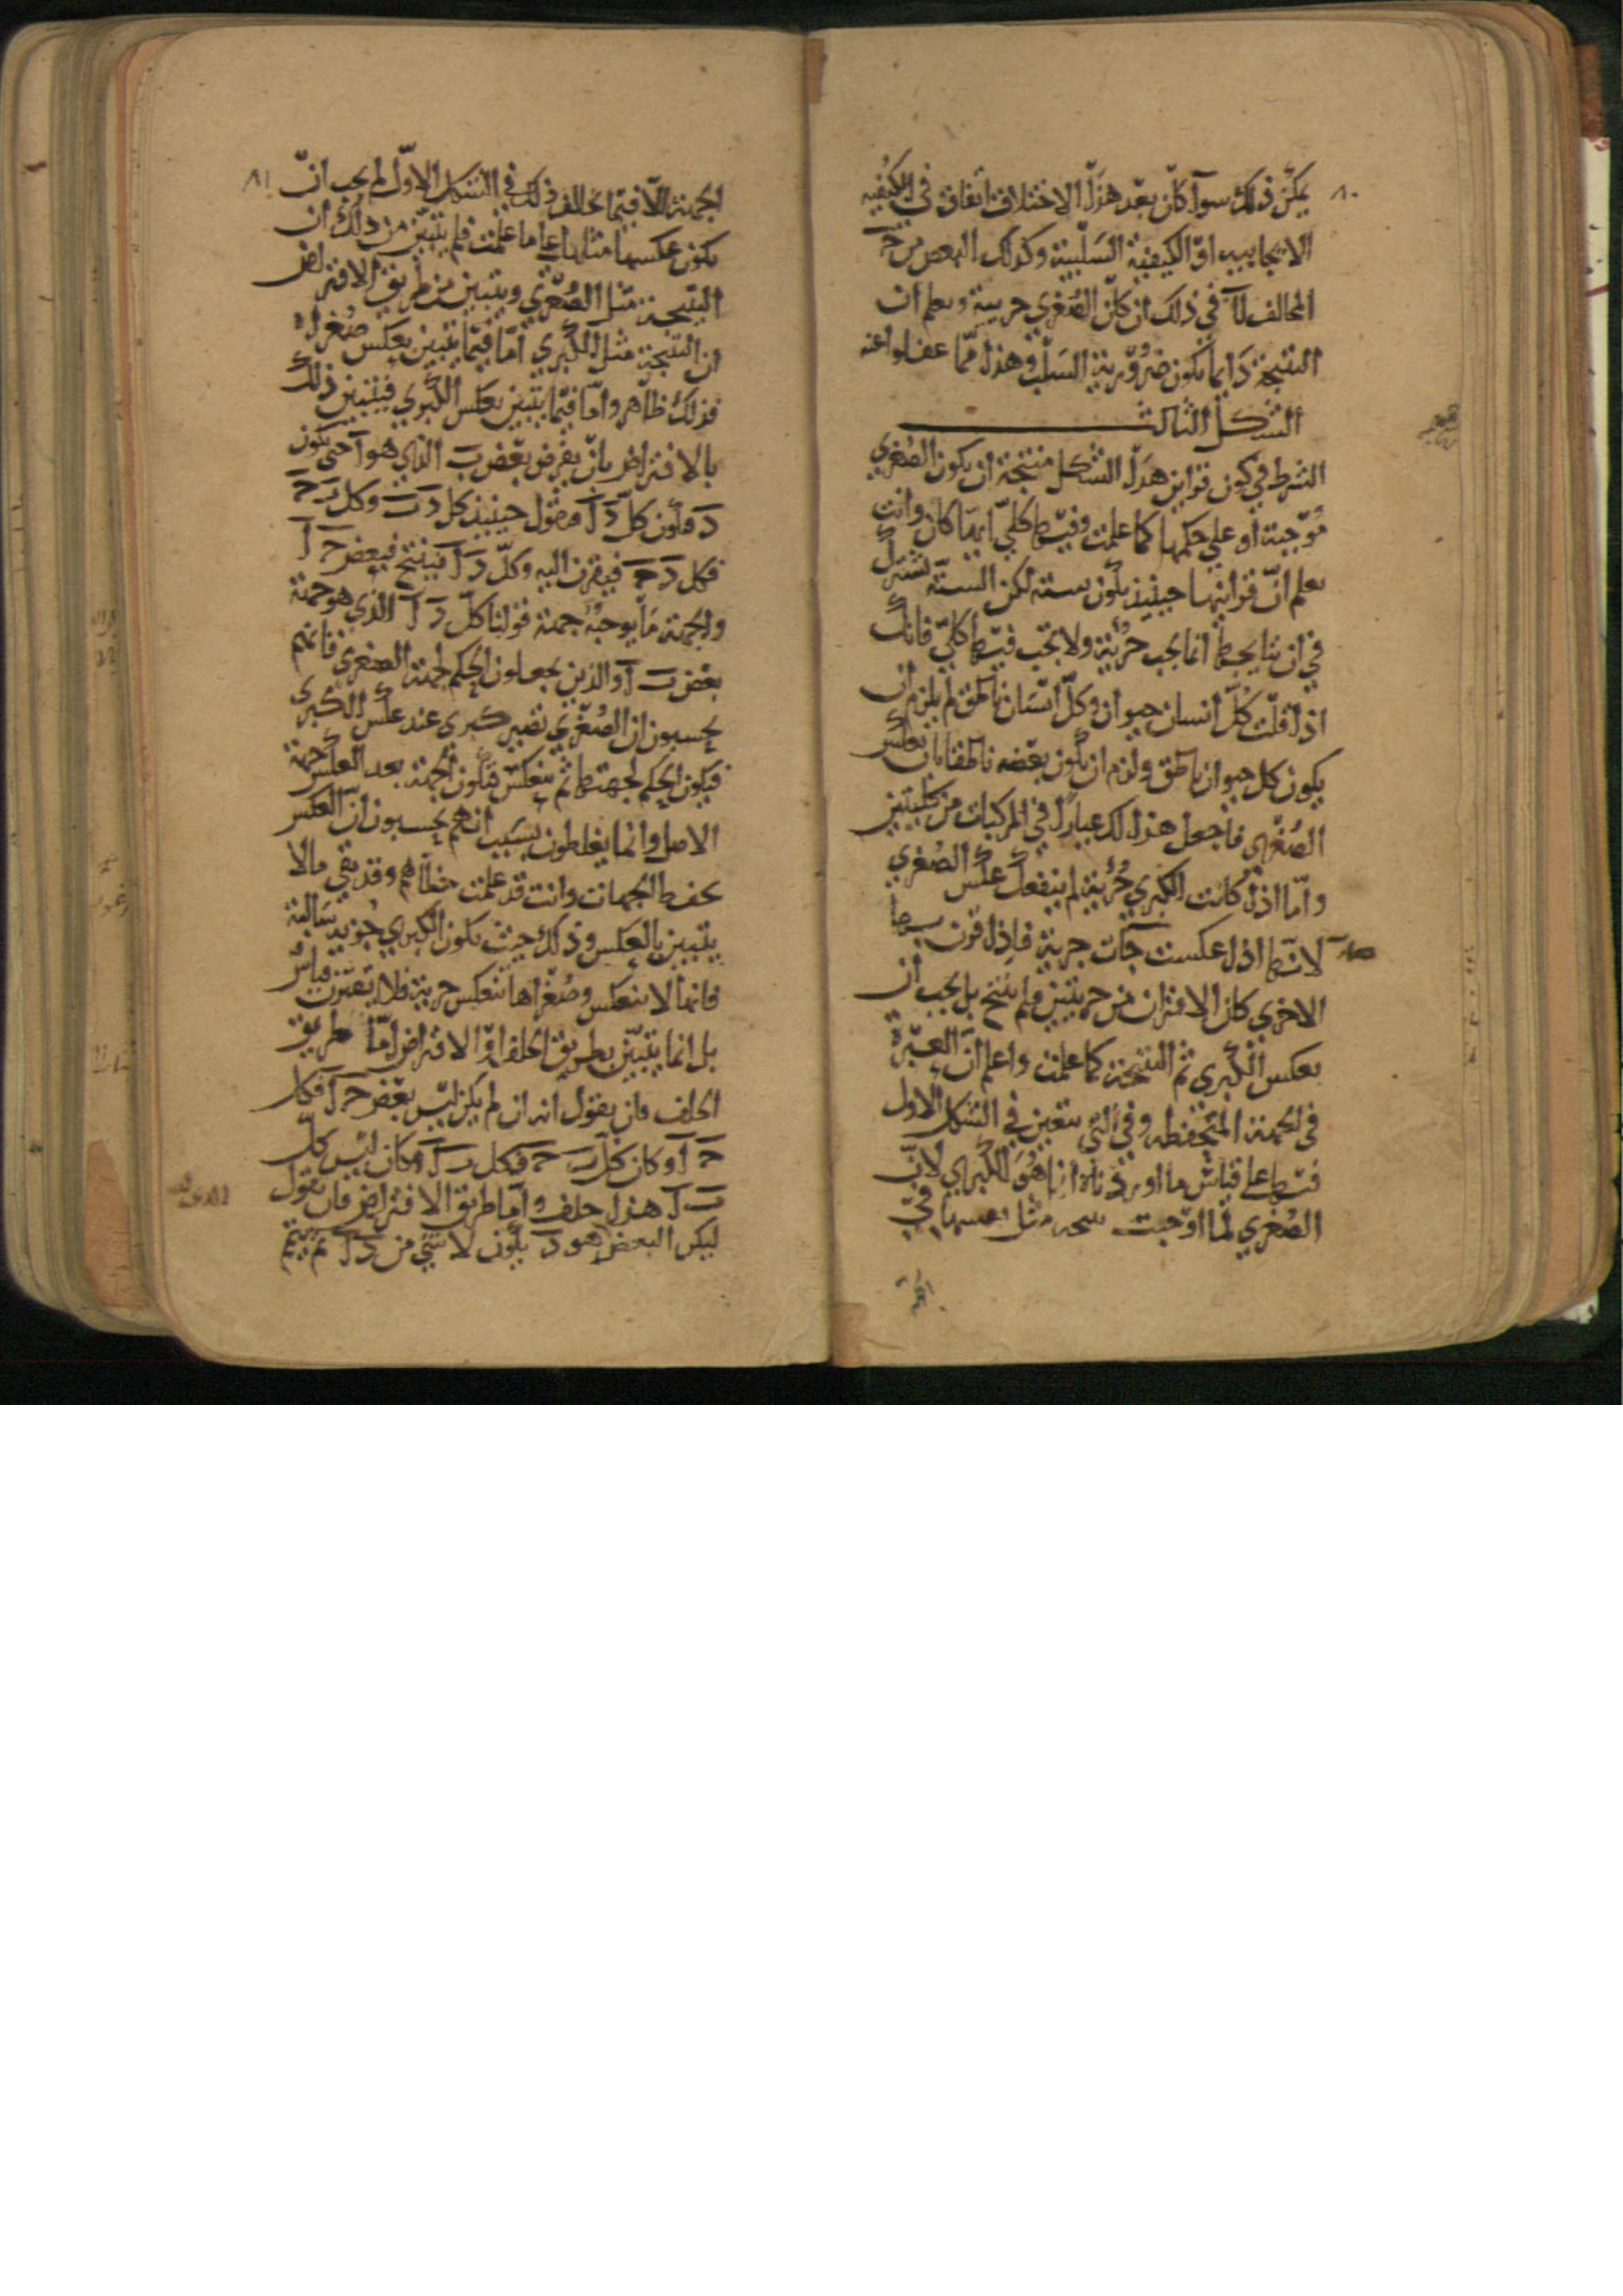 ٨٠
يمكن ذلك سوآ كان بعد هذا الاختلاف اتفاق في الكيفيه
الايجابيه او الكيفية السلبية وكذلك البعض من ح
المخالف لآ في ذلك ان كان الصغري جزيية وتعلم ان
النتيجة دايما تكون ضرورية السلب وهذا مما غفلوا عنه
الشكل الثالث
الشرط في كون قراين هذا الشكل منتجة ان يكون الصغري
موجبة او علي حكمها كما علمت وفيها كلي ايهما كان وانت
تعلم ان قراينها حينيذ تكون ستة لكن الستة تشترك
في ان نتايجها انما يجب جزية ولا يجب فيها كلي فانك
اذا قلت كل انسان حيوان وكل انسان ناطق لم يلزم ان
يكون كل حيوان ناطق ولزم ان يكون بعضه ناطقا بان تعكس
الصغري فاجعل هذا لك عيارا في المركبات من كليتين
واما اذا كانت الكبري جزية لم ينفعك عكس الصغري
لانها اذا عكست جآت جزية فاذا قرنت بها
الاخري كان الاقتران من جزيتين فلم ينتج بل يجب ان
تعكس الكبري ثم النتيجة كما علمت واعلم ان العبرة
في الجهة المتحفظه وفي التي تتعين في الشكل الاول
فيها علي قياس ما اوردناه انما هو الكبري لان
الصغري لما اوجبت مثل نفسها في
٨١
الجهة الا فيما يخالف ذلك في الشكل الاول لم يجب ان
يكون عكسها مثلها علي ما علمت فلم يتبين من ذلك ان
النتيجة مثل الصغري ويتبين من طريق الافتراض
ان النتيجة مثل الكبري اما فيما يتبين بعكس صغراه
فذلك ظاهر واما فيما يتبين بعكس الكبري فيتبين ذلك
بالافتراض بان يفرض بعض ب الذي هو آ حتي يكون
د فيكون كل د آ فنقول حينيذ كل د ب وكل ب ح
فكل د ح فيقرن اليه وكل د آ فينتج فبعض ح آ
والجهة ما يوجبه جهة قولنا كل د آ الذي هو جهة
بعض ب آ والذين يجعلون الحكم لجهة الصغري فانهم
يحسبون ان الصغري تصير كبري عند عكس الكبري
فيكون الحكم لجهتها ثم ينعكس فتكون الجهة بعد العكس جهة
الاصل وانما يغلطون بسبب انهم يحسبون ان العكس
يحفظ الجهات وانت قد علمت خطاهم وقد بقي ما لا
يتبين بالعكس وذلك حيث يكون الكبري جزية سالبة
فانها لا ينعكس وصغراها تنعكس جزية فلا يقترن قياس
بل انما يتبين بطريق الخلف او الافتراض اما طريق
الخلف فان يقول انه ان لم يكن ليس بعض ح آ فكل
ح آ وكان كل ب ح فكل ب آ وكان ليس كل
ب آ هذا خلف واما طريق الافتراض فان نقول
ليكن البعض هو د يكون لا شي من د آ ثم تتمم